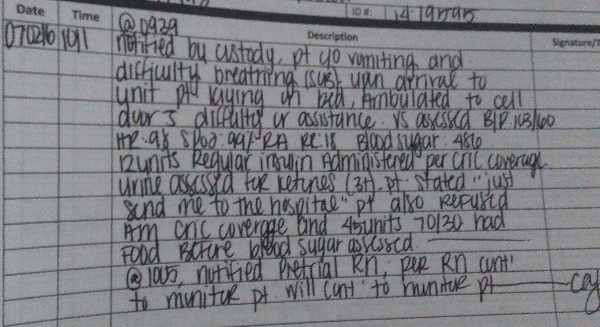 Date Time ID #: 1419595
Description Signature/T
@0939
070216 1011 notified by custody, pt c/o vomiting and
difficulty breathing (SOB). upon arrival to
unit pt laying on bed, Ambulated to cell
door s difficulty or assistance. VS assessed B/P 103/60
HR: 98 SPO2: 99% RA RR: 18 Blood sugar: 486
12units Regular insulin Administered per CRIC coverage
urine assessed for ketones (3+). pt. stated "just
send me to the hospital" pt also Refused
Am CRIC coverage and 45units 70/30 had
FOOD Before blood sugar assessed.
@ 1005, notified Pretrial RN, per RN cont'
to monitor pt. will cont' to monitor pt